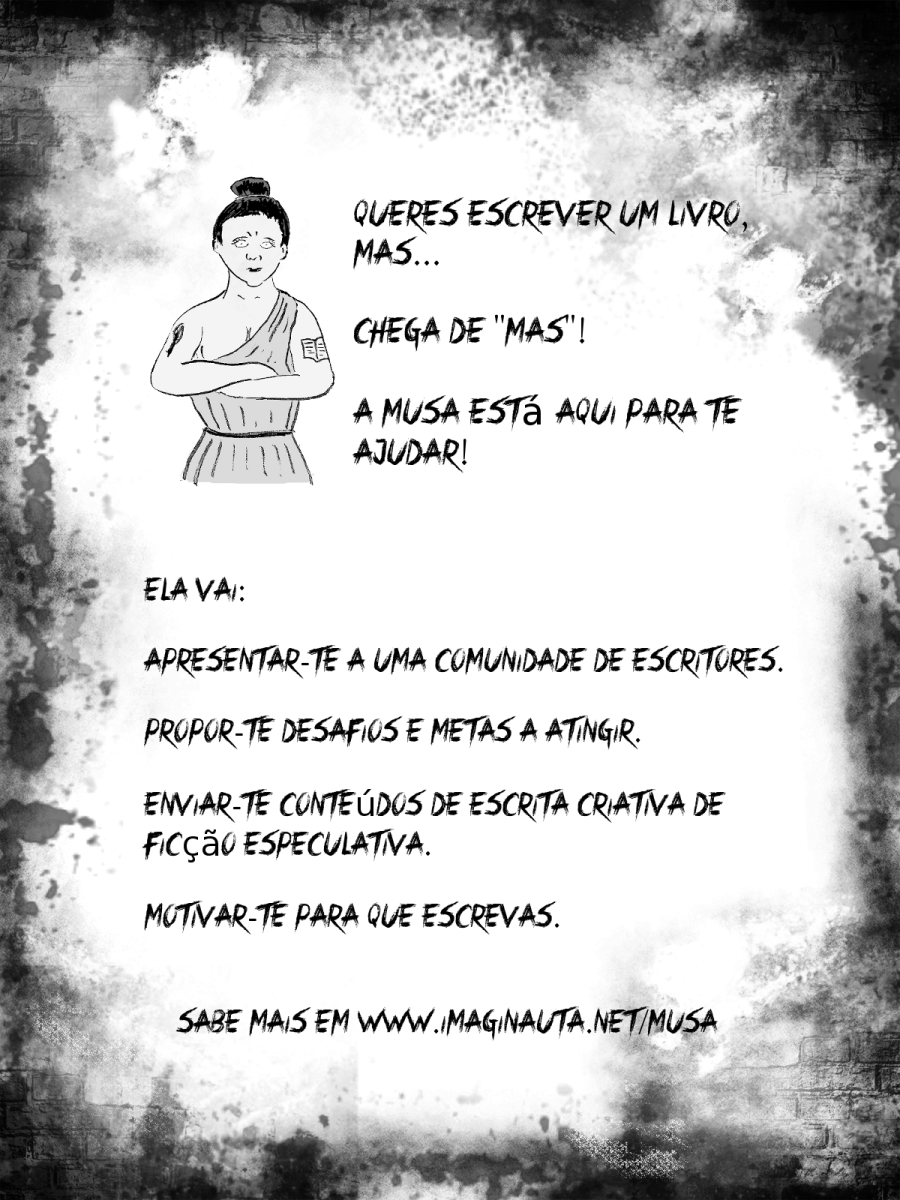 QUERES ESCREVER UM LIVRO,
MAS...
CHEGA DE "MAS"!
A MUSA ESTá AQUI PARA TE
AJUDAR!
ELA VAI:
APRESENTAR-TE A UMA COMUNIDADE DE ESCRITORES.
PROPOR-TE DESAFIOS E METAS A ATINGIR.
ENVIAR-TE CONTEúDOS DE ESCRITA CRIATIVA DE
FICçãO ESPECULATIVA.
MOTIVAR-TE PARA QUE ESCREVAS.
SABE MAIS EM WWW.IMAGINAUTA.NET/MUSA